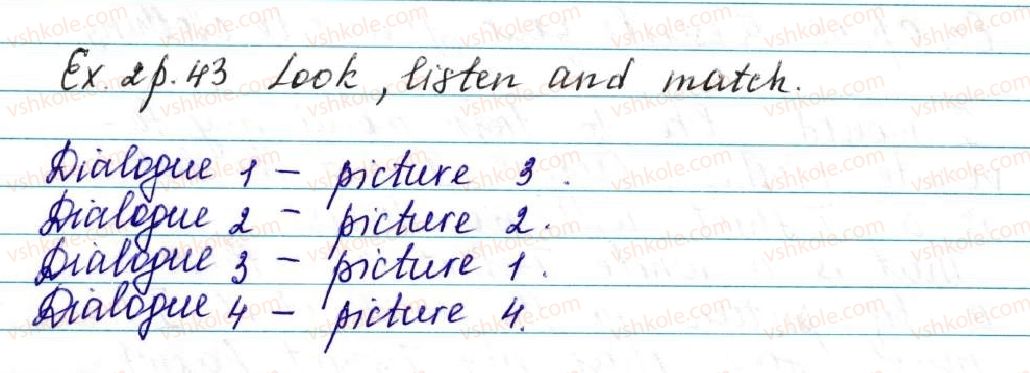 Ex. 2 p. 43 Look, listen and match.
Dialogue 1 – picture 3.
Dialogue 2 – picture 2.
Dialogue 3 – picture 1.
Dialogue 4 – picture 4.